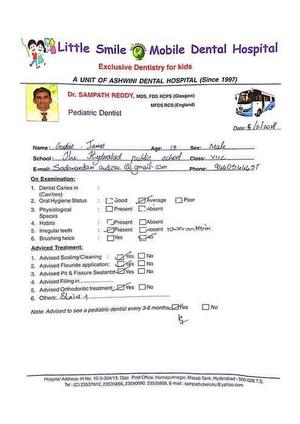 Little Smile Mobile Dental Hospital
Exclusive Dentistry for kids
A UNIT OF ASHWINI DENTAL HOSPITAL (Since 1997)
Dr. SAMPATH REDDY, MDS, FDS RCPS (Glasgow)
MFDS RCS (England)
Pediatric Dentist
Date:
Name: Age: 13 Sex: Male
School: The Hyderabad public school Class: VIII
E-mail: @gmail.com Phone:
On Examination:
1. Dental Caries in :
(Cavities)
2. Oral Hygiene Status : Good Average Poor
3. Physiological : Present Absent
Spaces
4. Habits : Present Absent
5. Irregular teeth : Present Absent
6. Brushing twice : Yes No
Adviced Treatment:
1. Advised Scaling/Cleaning : Yes No
2. Advised Flouride application: Yes No
3. Advised Pit & Fissure Sealants: Yes No
4. Advised Filling in
5. Advised Orthodontic treatment: Yes No
6. Others:
Note: Advised to see a pediatric dentist every 3-6 months: Yes No
Hospital Address: H No. 10-3-304/13, Opp. Post Office, Humayunnagar, Masab Tank, Hyderabad - 500 028.T.S.
Tel: (C) 23537612, 23535656, 23590590, 23535858. E-mail: sampathcheruku@yahoo.co.in